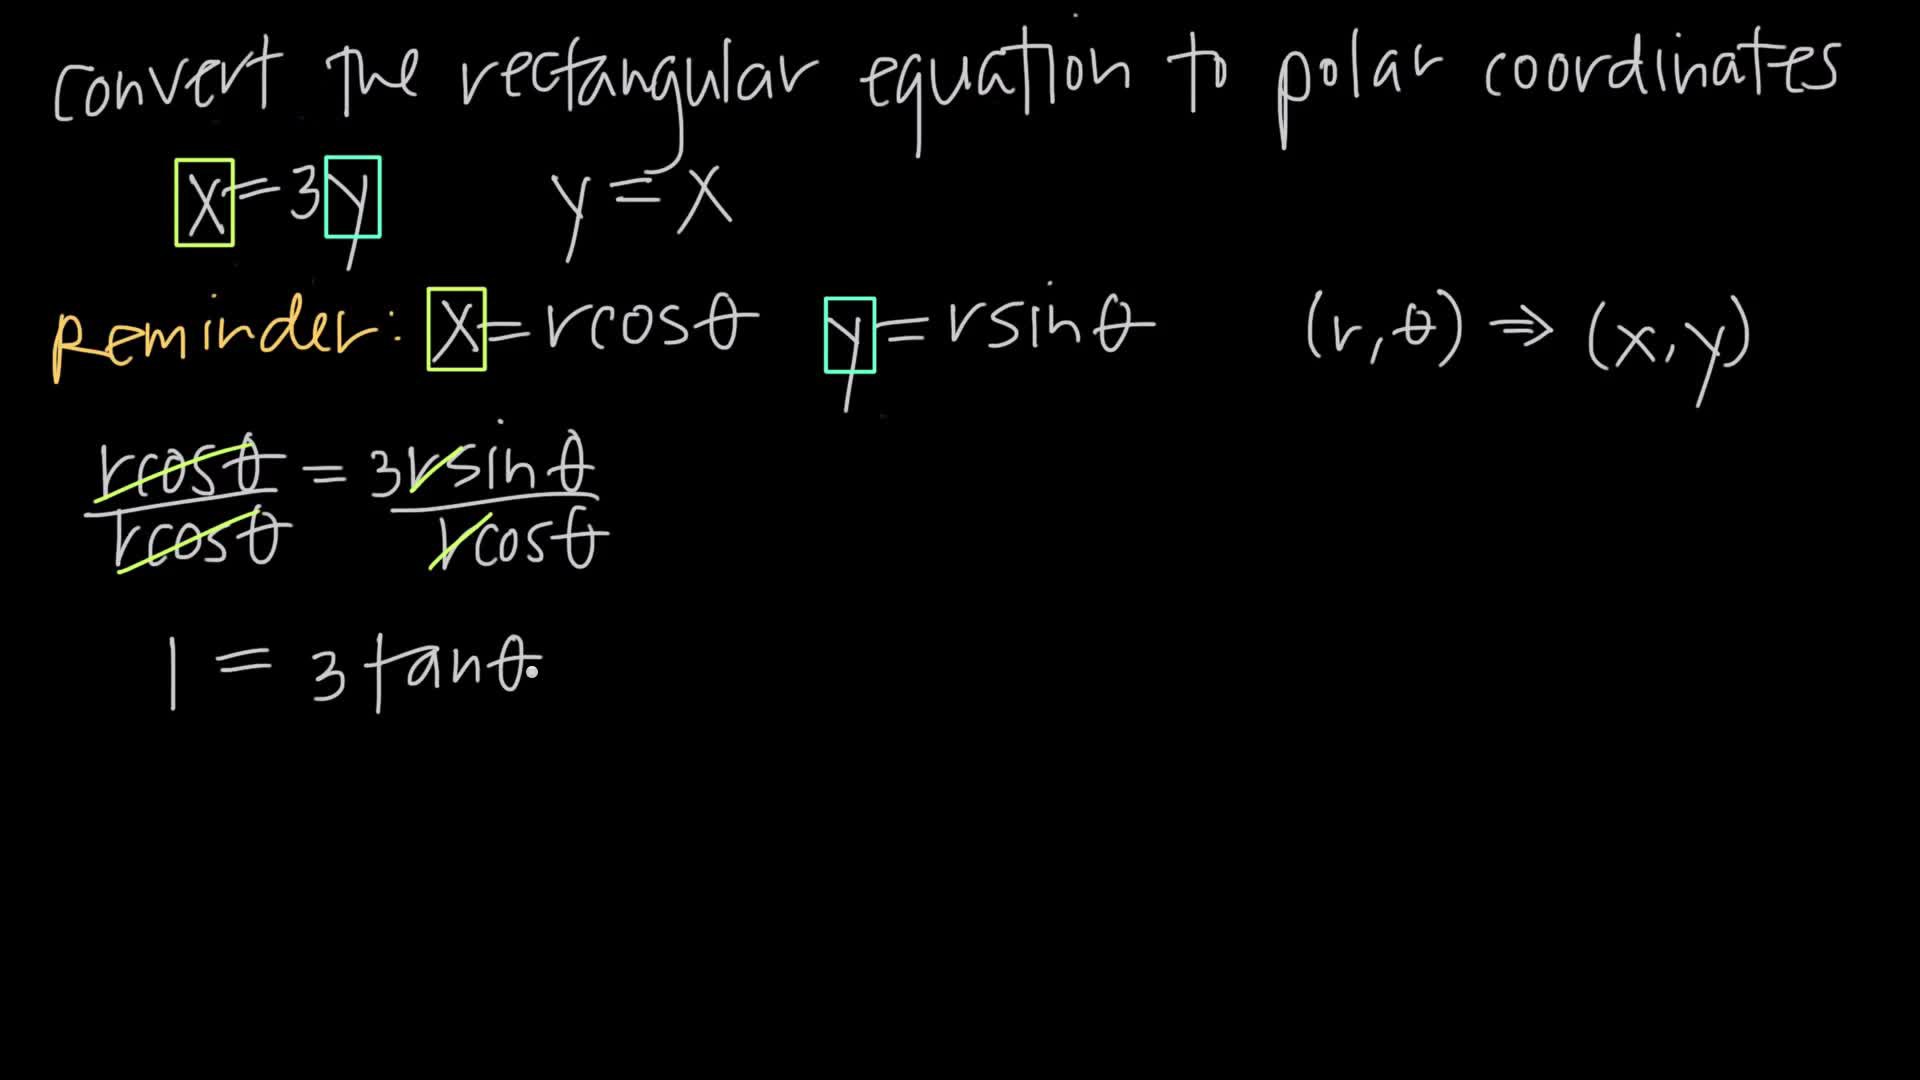 convert the rectangular equation to polar coordinates
x = 3y y = x
Reminder: x = rcosθ y = rsinθ (r, θ) ⇒ (x, y)
rcosθ = 3rsinθ
rcosθ rcosθ
1 = 3tanθ